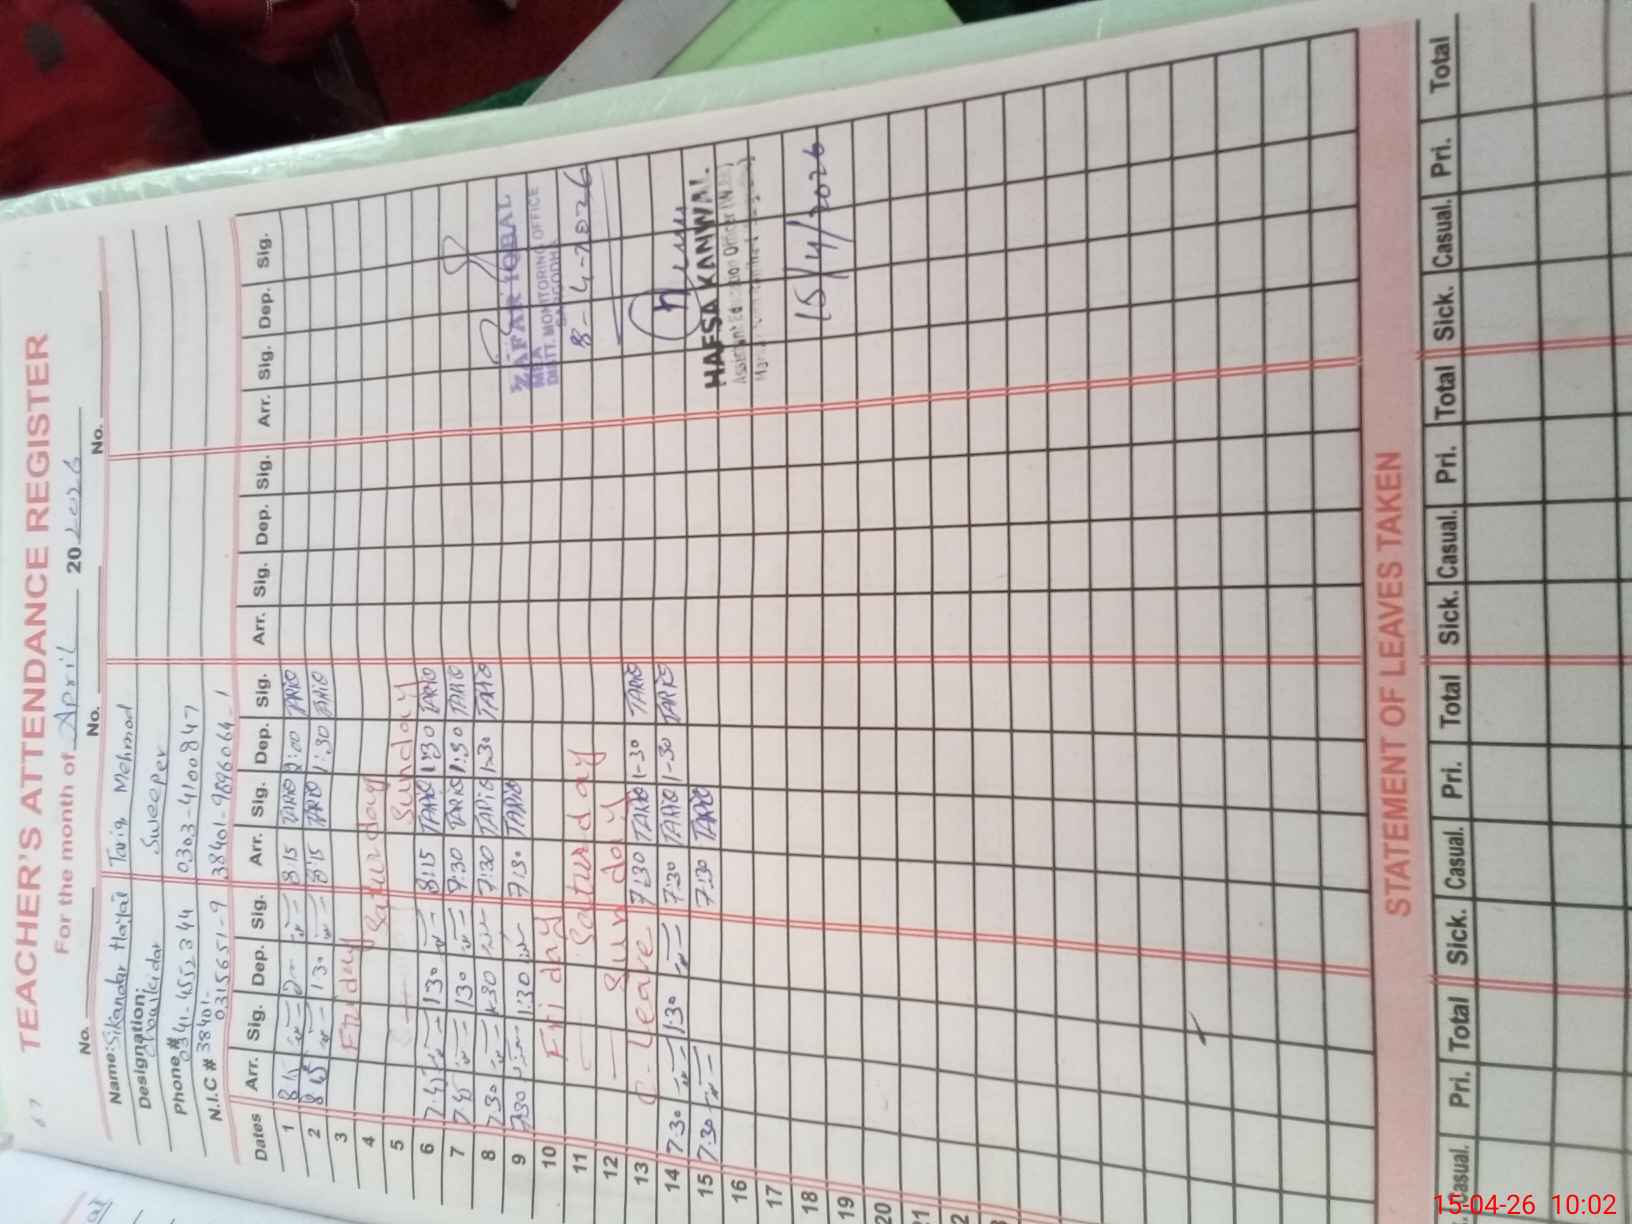 67
TEACHER'S ATTENDANCE REGISTER
For the month of April 20 2026
No. No. No.
Name: Sikandar Hayat Tariq Mehmod
Designation: Chowkidar Sweeper
Phone # 0341-4552344 0303-4100847
N.I.C # 38401- 0315651-9 38401-9896064-1
Dates Arr. Sig. Dep. Sig. Arr. Sig. Dep. Sig. Arr. Sig. Dep. Sig. Arr. Sig. Dep. Sig.
1 8:15 TARIQ 2:00 TARIQ
2 1 30 8:15 TARIQ 1:30 TARIQ
3 Friday
4 Saturday
5 Sunday
6 7:45 130 8:15 TARIQ 1:30 TARIQ
7 7:45 130 7:30 TARIQ 1:30 TARIQ
8 7:30 1:30 7:30 TARIQ 1-30 TARIQ
ZAFAR IQBAL
MEA
DISTT. MONITORING OFFICE
SARGODHA
9 7:30 1:30 7:30 TARIQ
10 Friday
8-4-2026
11 Saturday
12 Sunday
13 C-Leave 7:30 TARIQ 1-30 TARIQ
14 7:30 130 7:30 TARIQ 1-30 TARIQ
15 7:30 7:30 TARIQ
HAFSA KANWAL
Assistant Education Officer
16
17
18 15/4/2026
19
20
STATEMENT OF LEAVES TAKEN
Casual. Pri. Total Sick. Casual. Pri. Total Sick. Casual. Pri. Total Sick. Casual. Pri. Total
15-04-26 10:02